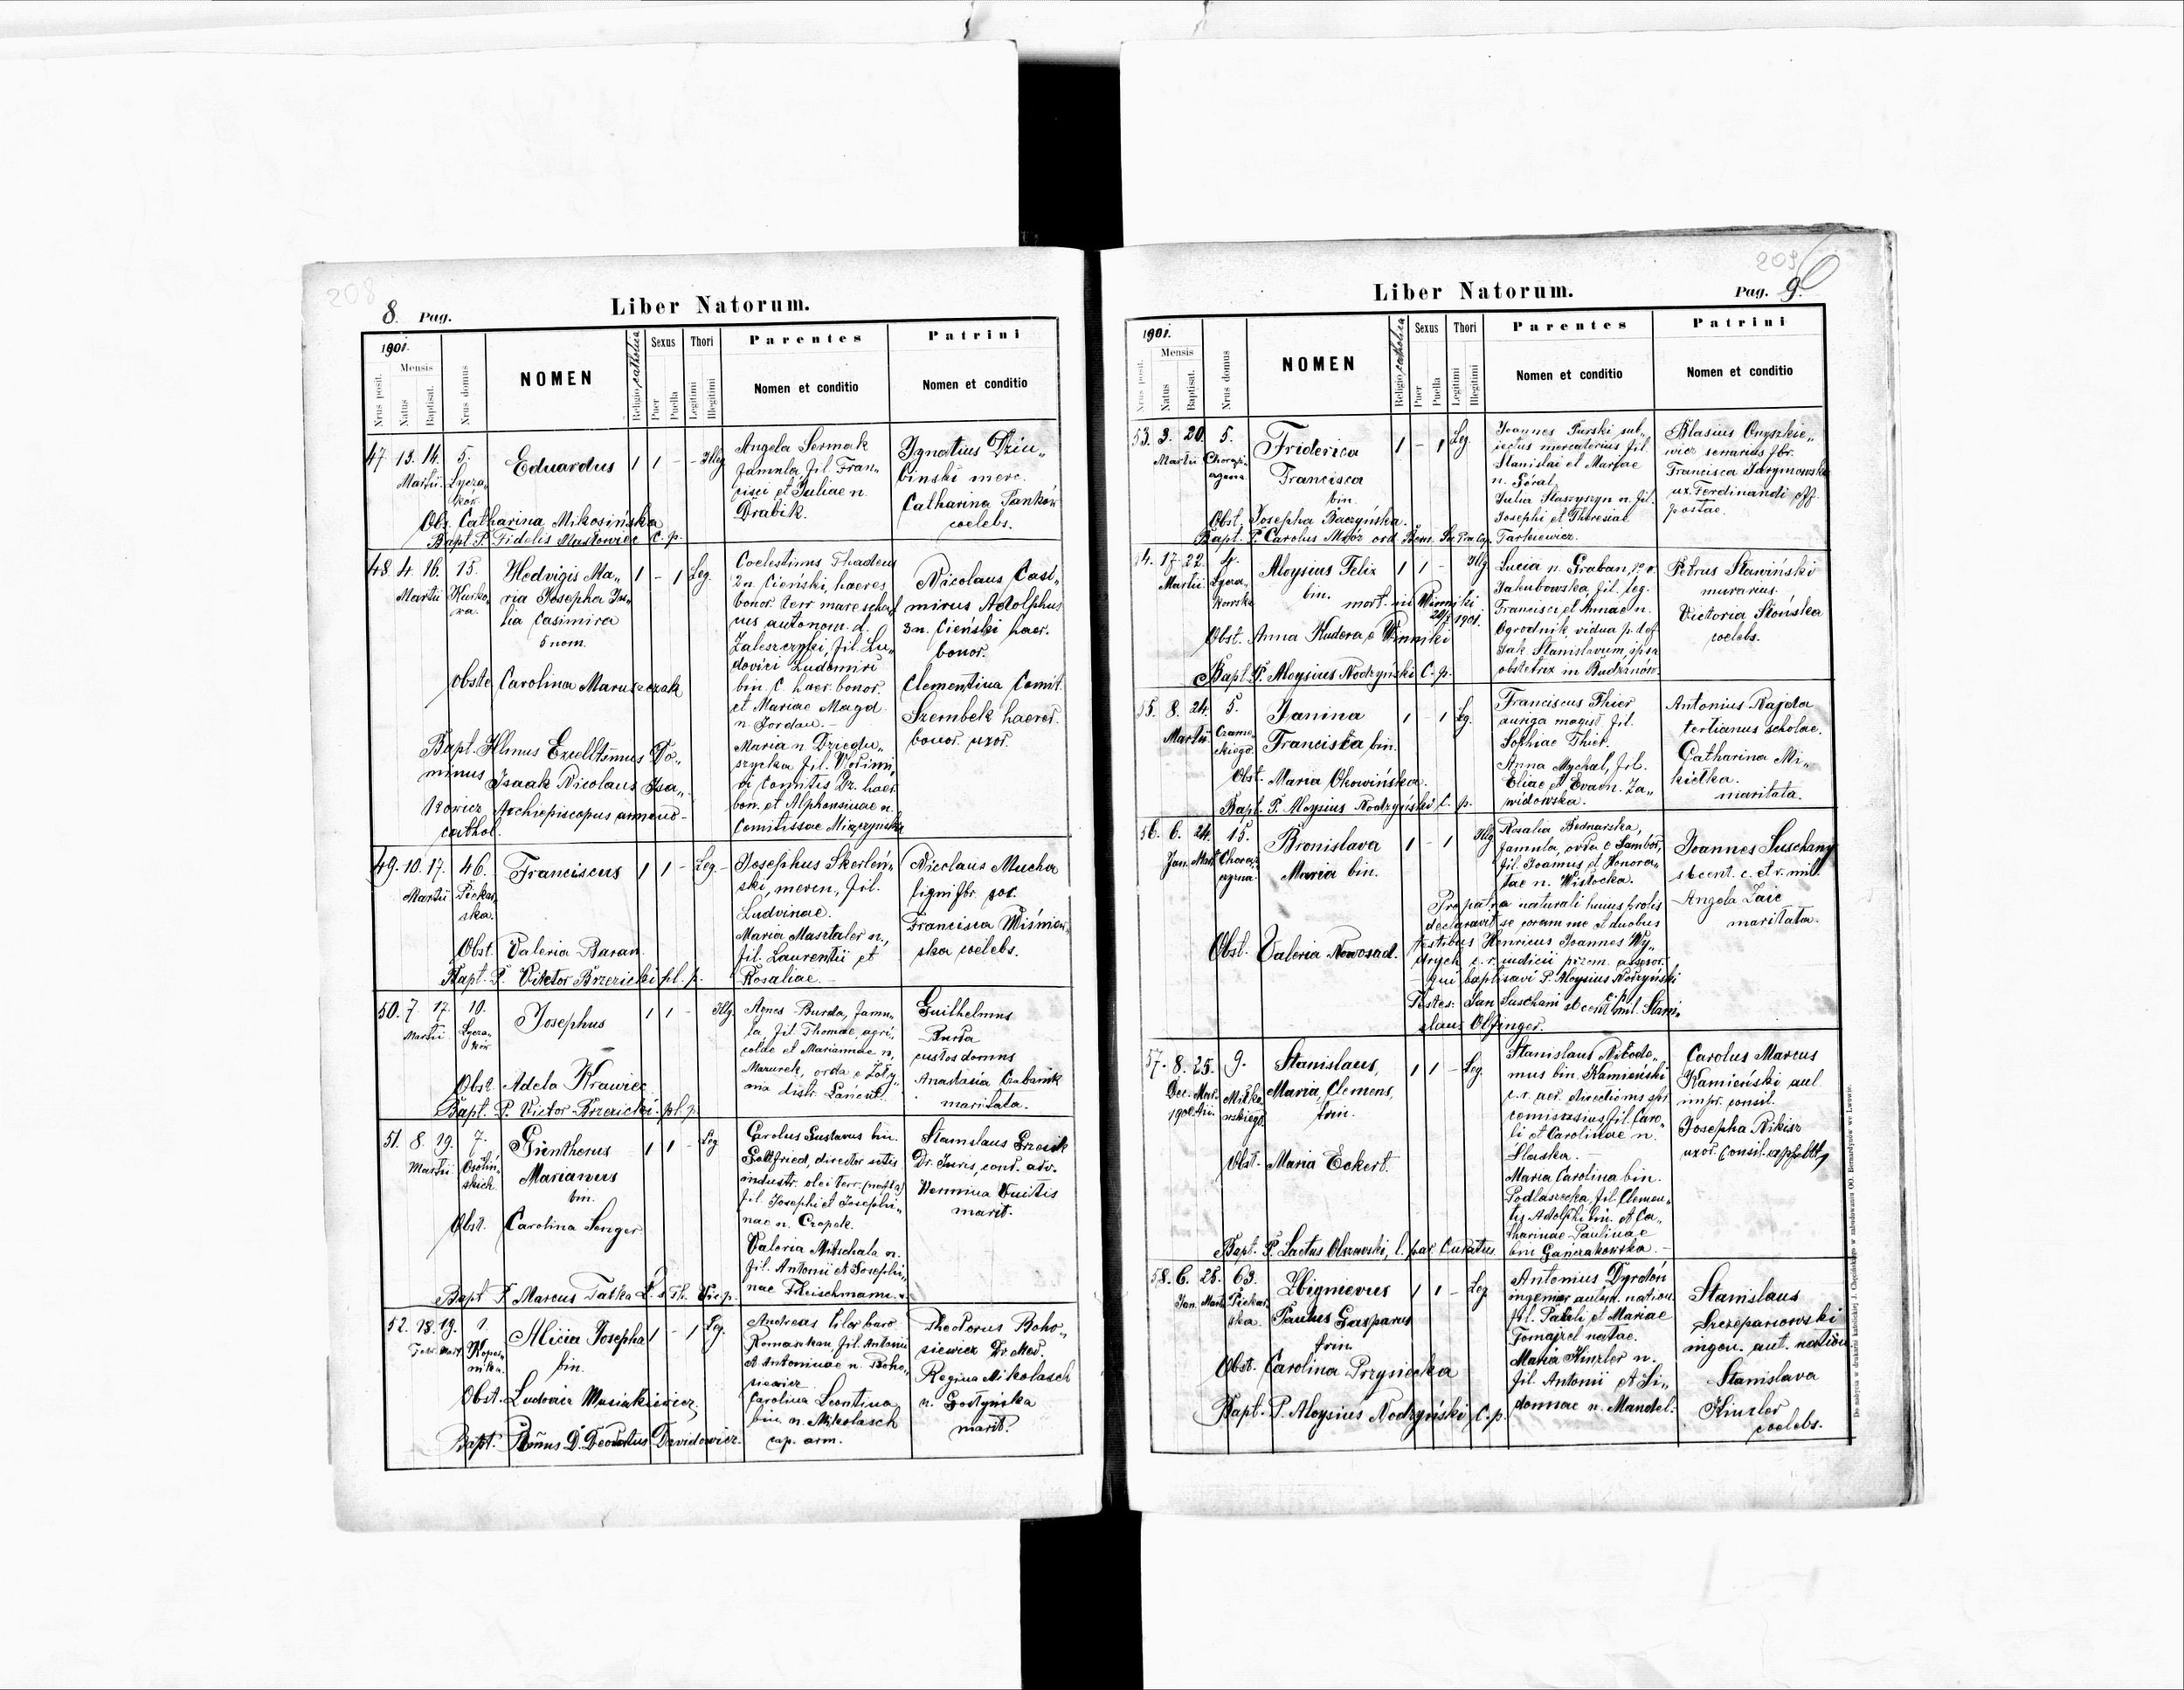 208
8. Pag.
Liber Natorum.
1901.
Nrus posit.
Mensis
Natus
Baptisat.
Nrus domus
NOMEN
Religio catholica
Sexus
Puer
Puella
Thori
Legitimi
Illegitimi
Parentes
Nomen et conditio
Patrini
Nomen et conditio
47 13. 14. 5. Eduardus 1 1 - - Illeg.
Martii. Lycza
ków.
Obs. Catharina Mikosińska
Bapt. P. Fidelis Masłowiec C. p.
Angela Sermak
famula, fil. Fran„
cisci et Juliae n.
Drabik.
Ignatius Dziu„
binski merc.
Catharina Panków
coelebs.
48. 4. 16. 15. Hedvigis Ma„ 1 - 1 Leg.
Martii Kurko
wa.
ria Josepha Ju„
lia Casimira
5 nom.
Obste Carolina Maruszczak
Bapt. Illmus Excelltsmus Do„
minus Isaak Nicolaus Isa„
kowicz Archiepiscopus armeno-
cathol.
Coelestinus Thadeus
2 n. Cieński, haeres
bonor. terr mareschal
cus autonom. d.
Zaleszczyki, fil. Lu„
dovici Ludomiri
bin. C. haer. bonor.
et Mariae Magd.
n. Jordan. -
Maria n. Dziedu„
szycka fil. Wlodimi„
ri Comitis Dz. haer.
bon. et Alphonsinae n.
Comitissae Miączyńska
Nicolaus Casi„
mirus Adolphus
3 n. Cieński haer.
bonor.
Clementina Comit.
Szembek haered.
bonor. uxor.
49. 10. 17. 46. Franciscus 1 1 - Leg. -
Martii Piekar
ska.
Obst. Valeria Baran.
Bapt. P. Viktor Brzezicki pl. p.
Josephus Skerleń„
ski, mercn., fil.
Ludvinae.
Maria Masztaler n.,
fil. Laurentii et
Rosaliae. -
Nicolaus Mucha
lignifbr. soc.
Francisca Wiśniew„
ska coelebs.
50. 7. 17. 10. Josephus 1 1 - Illg.
Martii Lycza
ków.
Obst. Adela Krawiec
Bapt. P. Victor Brzezicki pl. p.
Agnes Burda, famu„
la, fil. Thomae, agri„
colae et Mariannae n.
Mazurek, orda e Żoły„
nia distr. Łańcut.
Guilhelmus
Burda
custos domus
Anastasia Grabarnik
maritata.
51. 8. 19. 7. Güntherus 1 1 - Leg
Martii Ossoliń„
skich.
Marianus
bin.
Obst. Carolina Senger
Bapt. P. Marcus Tatka
Carolus Gustavus bin.
Gottfried, director sctis
industr. olei terr. (nafta)
fil. Josephi et Josephi„
nae n. Czopek.
Valeria Mitschala n.
fil. Antonii et Josephi„
nae Fleischmann.
Stanislaus Grzesik
Dr. Juris, cand. adv.
Hermina Vuitis
marit.
52. 18. 19. 1. Alicia Josepha 1 - 1 Leg.
Febr. Mart. Koper„
nika.
bin.
Obst. Ludovica Musiakiewicz.
Bapt. Rmus D. Deodatus Davidowicz.
Andreas liber baro
Romaszkan, fil. Antonii
et Antoninae n. Boho„
siewicz
Carolina Leontina
bin. n. Mikolasch
cap. arm.
Theodorus Boho„
siewicz Dr. Med.
Regina Mikolasch
n. Gostyńska
marit.
209
Liber Natorum.
Pag. 9.
1901.
Nrus posit.
Mensis
Natus
Baptisat.
Nrus domus
NOMEN
Religio catholica
Sexus
Puer
Puella
Thori
Legitimi
Illegitimi
Parentes
Nomen et conditio
Patrini
Nomen et conditio
53. 3. 20. 5. Friderica 1 - 1 Leg.
Martii Chorąż„
czyzna
Francisca
bin.
Obst. Josepha Baczyńska.
Bapt. P. Carolus Mróz ord.
Joannes Purski sub„
iectus mercatorius fil.
Stanislai et Mariae
n. Góral,
Julia Staszyszyn n. fil.
Josephi et Theresiae
Tarkiewicz.
Blasius Onyszkie„
wicz serrarius fbr.
Francisca Jarymowska
ux. Ferdinandi off.
postae.
54. 17. 22. 4. Aloysius Felix 1 1 - Illg
Martii Lycza„
kowska
bin.
mort. in Winniki
1901.
Obst. Anna Kudera e Winniki
Bapt. P. Aloysius Nodzyński C. p.
Lucia n. Graban, 1o v.
Jakubowska, fil. leg.
Francisci et Annae n.
Ogrodnik, vidua p. def.
Jak. Stanislavum, ipsa
obstetrix in Budzanów.
Petrus Sławiński
murarius.
Victoria Słońska
coelebs.
55. 8. 24. 5. Janina 1 - 1 Leg.
Martii Czarne„
ckiego
Franciska bin.
Obst. Maria Okowińska.
Bapt. P. Aloysius Nodzyński C. p.
Franciscus Thier
auriga magist. fil.
Sophiae Thier.
Anna Mychal, fil.
Eliae et Evae n. Za„
widowska.
Antonius Rajda
tertianus scholae.
Catharina Mi„
kietka.
maritata.
56. 6. 24. 15. Bronislava 1 - 1 Illg
Jan. Mart. Chorąż„
czyzna
Maria bin.
Obst. Valeria Nowosad.
Rosalia Bednarska,
famula, orda e Sambor,
fil. Joannis et Honora„
tae n. Wistocka.
Pro patre naturali huius prolis
declaravit se coram me et duobus
testibus Henricus Joannes Wy„
drych c. r. iudicii przem. assesor.
qui baptisavi P. Aloysius Nodzyński
C. p.
Testes: Jan Suschani st. cent. mil. Stani„
slaus Olfinger.
Joannes Suschany
st. cent. c. et r. mil.
Angela Zaic
maritata.
57. 8. 25. 9. Stanislaus, 1 1 - Leg.
Dec. Mar„
1900. tii.
Miłko„
wskiego
Maria, Clemens,
trin.
Obst. Maria Eckert.
Bapt. P. Laetus Olszewski, l. par. Curatus.
Stanislaus Nikode„
mus bin. Kamieński
c. r. aer. directionis sbst.
comissarius, fil. Caro„
li et Carolinae n.
Slaska. -
Maria Carolina bin.
Podlaszecka, fil. Clemen„
tis Adolphi bin. et Ca„
tharinae Paulinae
bin. Ganczakowska. -
Carolus Marcus
Kamieński aul.
impr. consil.
Josepha Nikisz
uxor. consil. appelltt.
58. 6. 25. 63. Zbignievus 1 1 - Leg.
Jan. Martii Piekar
ska.
Paulus Gasparus
trin.
Obst. Carolina Przysiecka
Bapt. P. Aloysius Nodzyński C. p.
Antonius Dyrdoń
ingenier auton. nation.
fil. Pauli et Mariae
Tomajzel natae.
Maria Kinzler n.
fil. Antonii et Si„
doniae n. Mandel.
Stanislaus
Szczepanowski
ingen. aut. nation.
Stanislava
Kinzler
coelebs.
Do nabycia w drukarni katolickiej J. Chęcińskiego w zabudowaniu OO. Bernardynów we Lwowie.